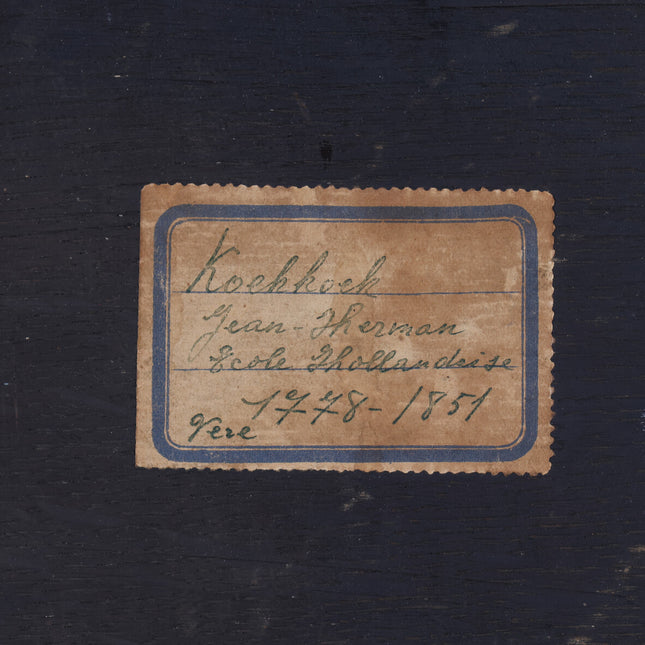 Koehkoek
Jean-Hherman
Ecole Hhollandeise
1778-1851
Vere